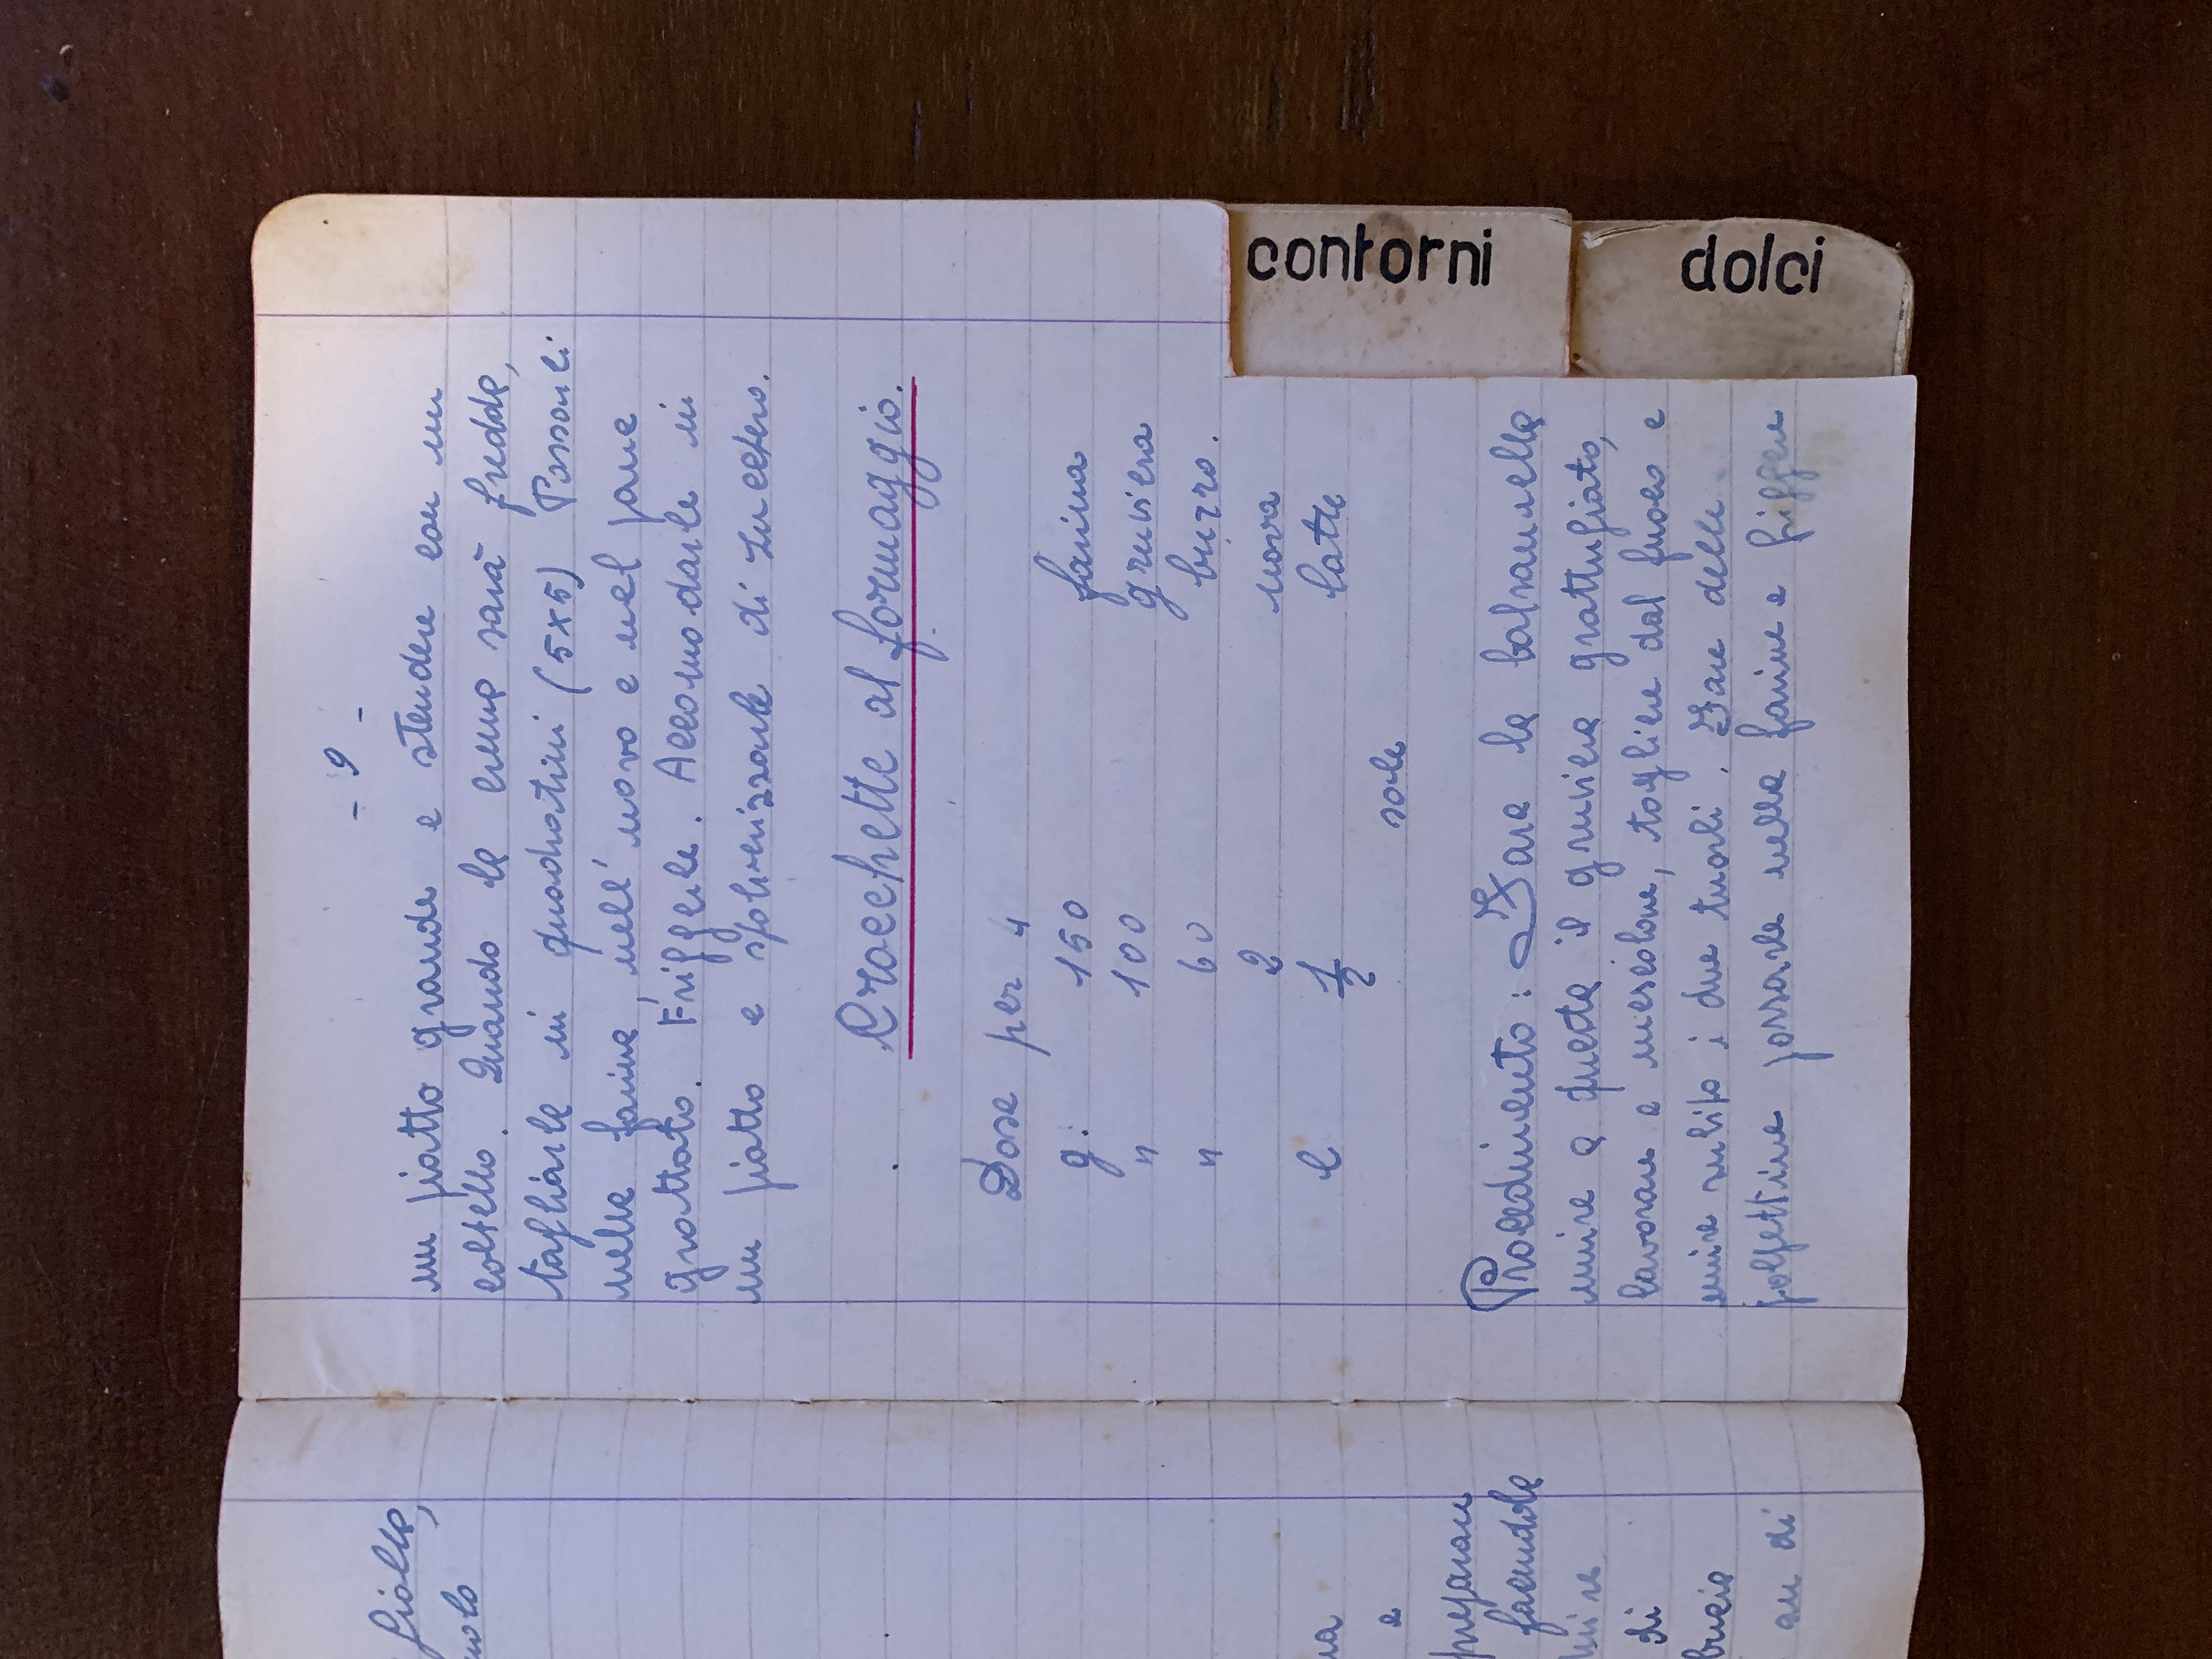 gialla,
- 9 -
un piatto grande e stendere con un
coltello. Quando la crema sarà fredda,
tagliarla in quadratini (5x5) Passarli
nella farina, nell'uovo e nel pane
grattato. Friggerle. Accomodarle in
un piatto e spolverizzarle di zucchero.
Crocchette al formaggio.
Dose per 4
g. 150 farina
" 100 gruviera
" 60 burro.
2 uova
l 1/2 latte
sale
Procedimento: Fare la balsamella
unire a questa il gruviera grattugiato,
lavorare e mescolare, togliere dal fuoco e
unire subito i due tuorli. Fare delle
polpettine passarle nella farina e friggere
e
preparare
facendola
di
an di
contorni
dolci